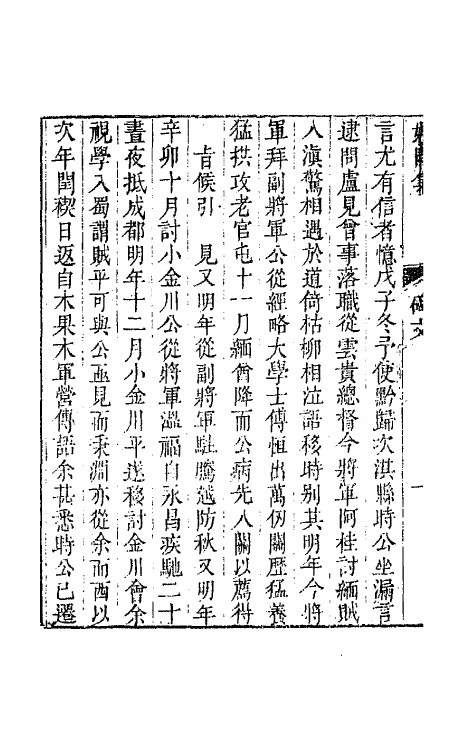 碑文
一
言尤有信者憶戊子冬予使黔歸次淇縣時公坐漏言
逮問盧見曾事落職從雲貴總督今將軍阿桂討緬賊
入滇驚相遇於道倚枯柳相泣語移時别其明年今將
軍拜副將軍公從經略大學士傅恒出萬仞關歷猛養
猛拱攻老官屯十一月緬酋降而公病先入關以薦得
旨候引　見又明年從副將軍駐騰越防秋又明年
辛卯十月討小金川公從將軍溫福自永昌疾馳二十
晝夜抵成都明年十二月小金川平遂移討金川會余
視學入蜀謂賊平可與公亟見而秉淵亦從余而西以
次年閏禊日返自木果木軍營傳語余甚悉時公已遷